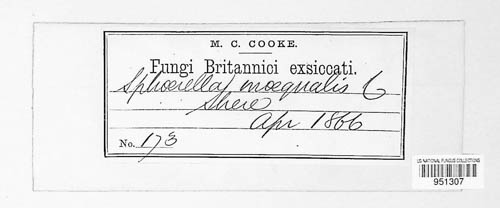 M. C. COOKE.
Fungi Britannici exsiccati.
Sphærella inæqualis C
Shere
Apr 1866
No. 173
US NATIONAL FUNGUS COLLECTIONS
951307